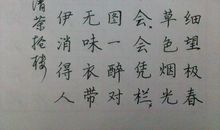 细望极春
草色烟光
会凭栏
图一醉对
无味衣带
伊消得人
清茶